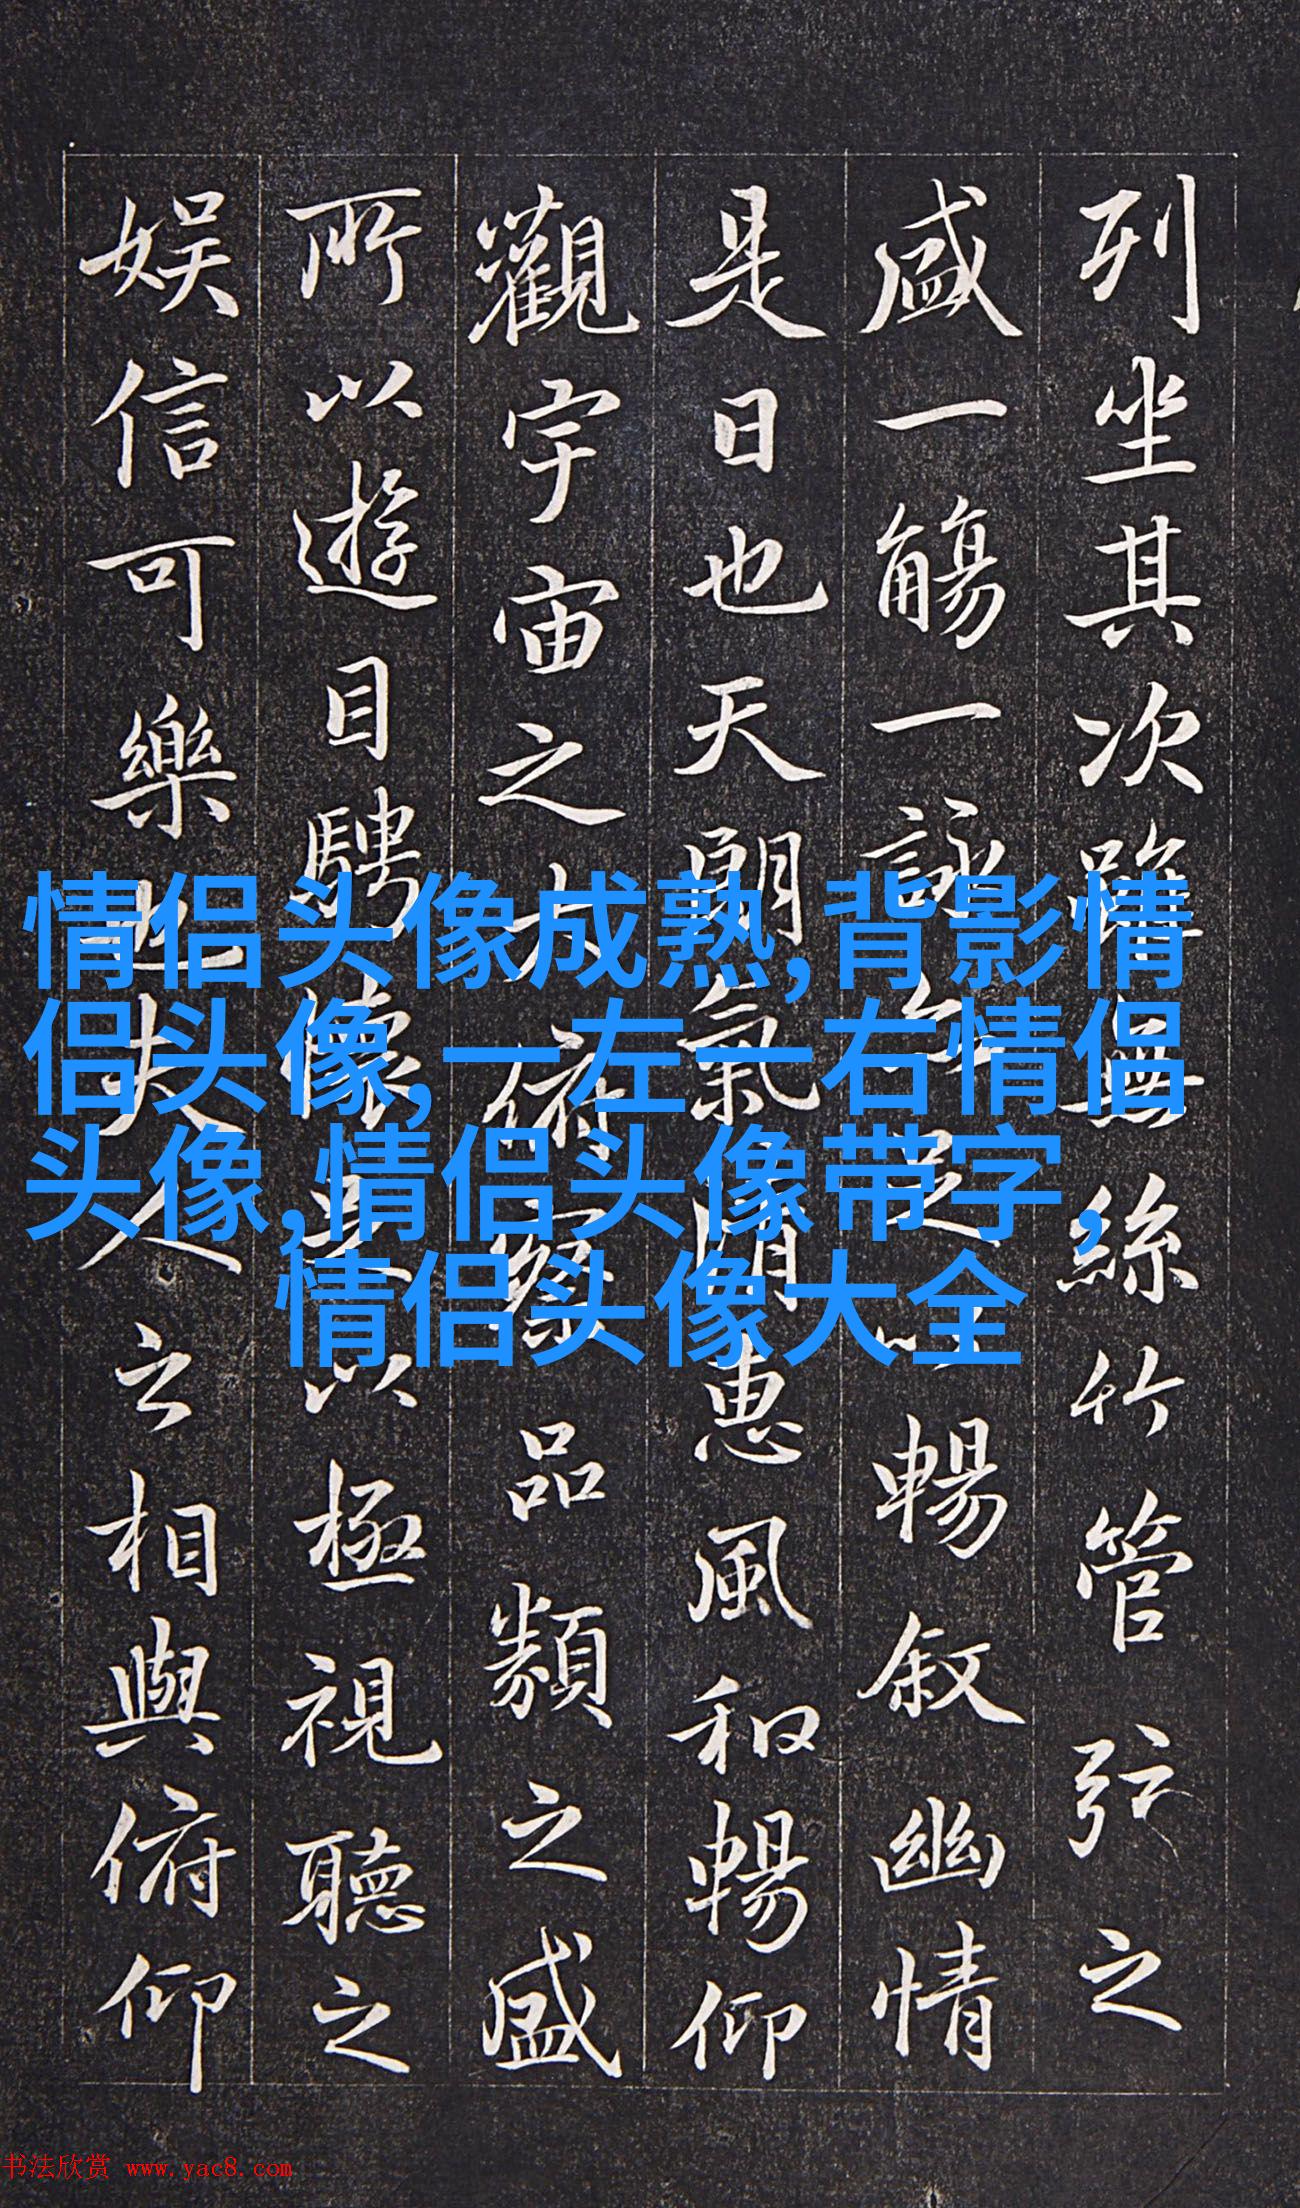 列坐其次雖無絲竹管弦之
盛一觴一詠亦足以暢叙幽情
是日也天朗氣清惠風和暢仰
觀宇宙之大俯察品類之盛
所以遊目騁懷足以極視聽之
娱信可樂也夫人之相與俯仰
情侣头像成熟,背影情
侣头像,一左一右情侣
头像,情侣头像带字,
情侣头像大全
书法欣赏 www.yac8.com